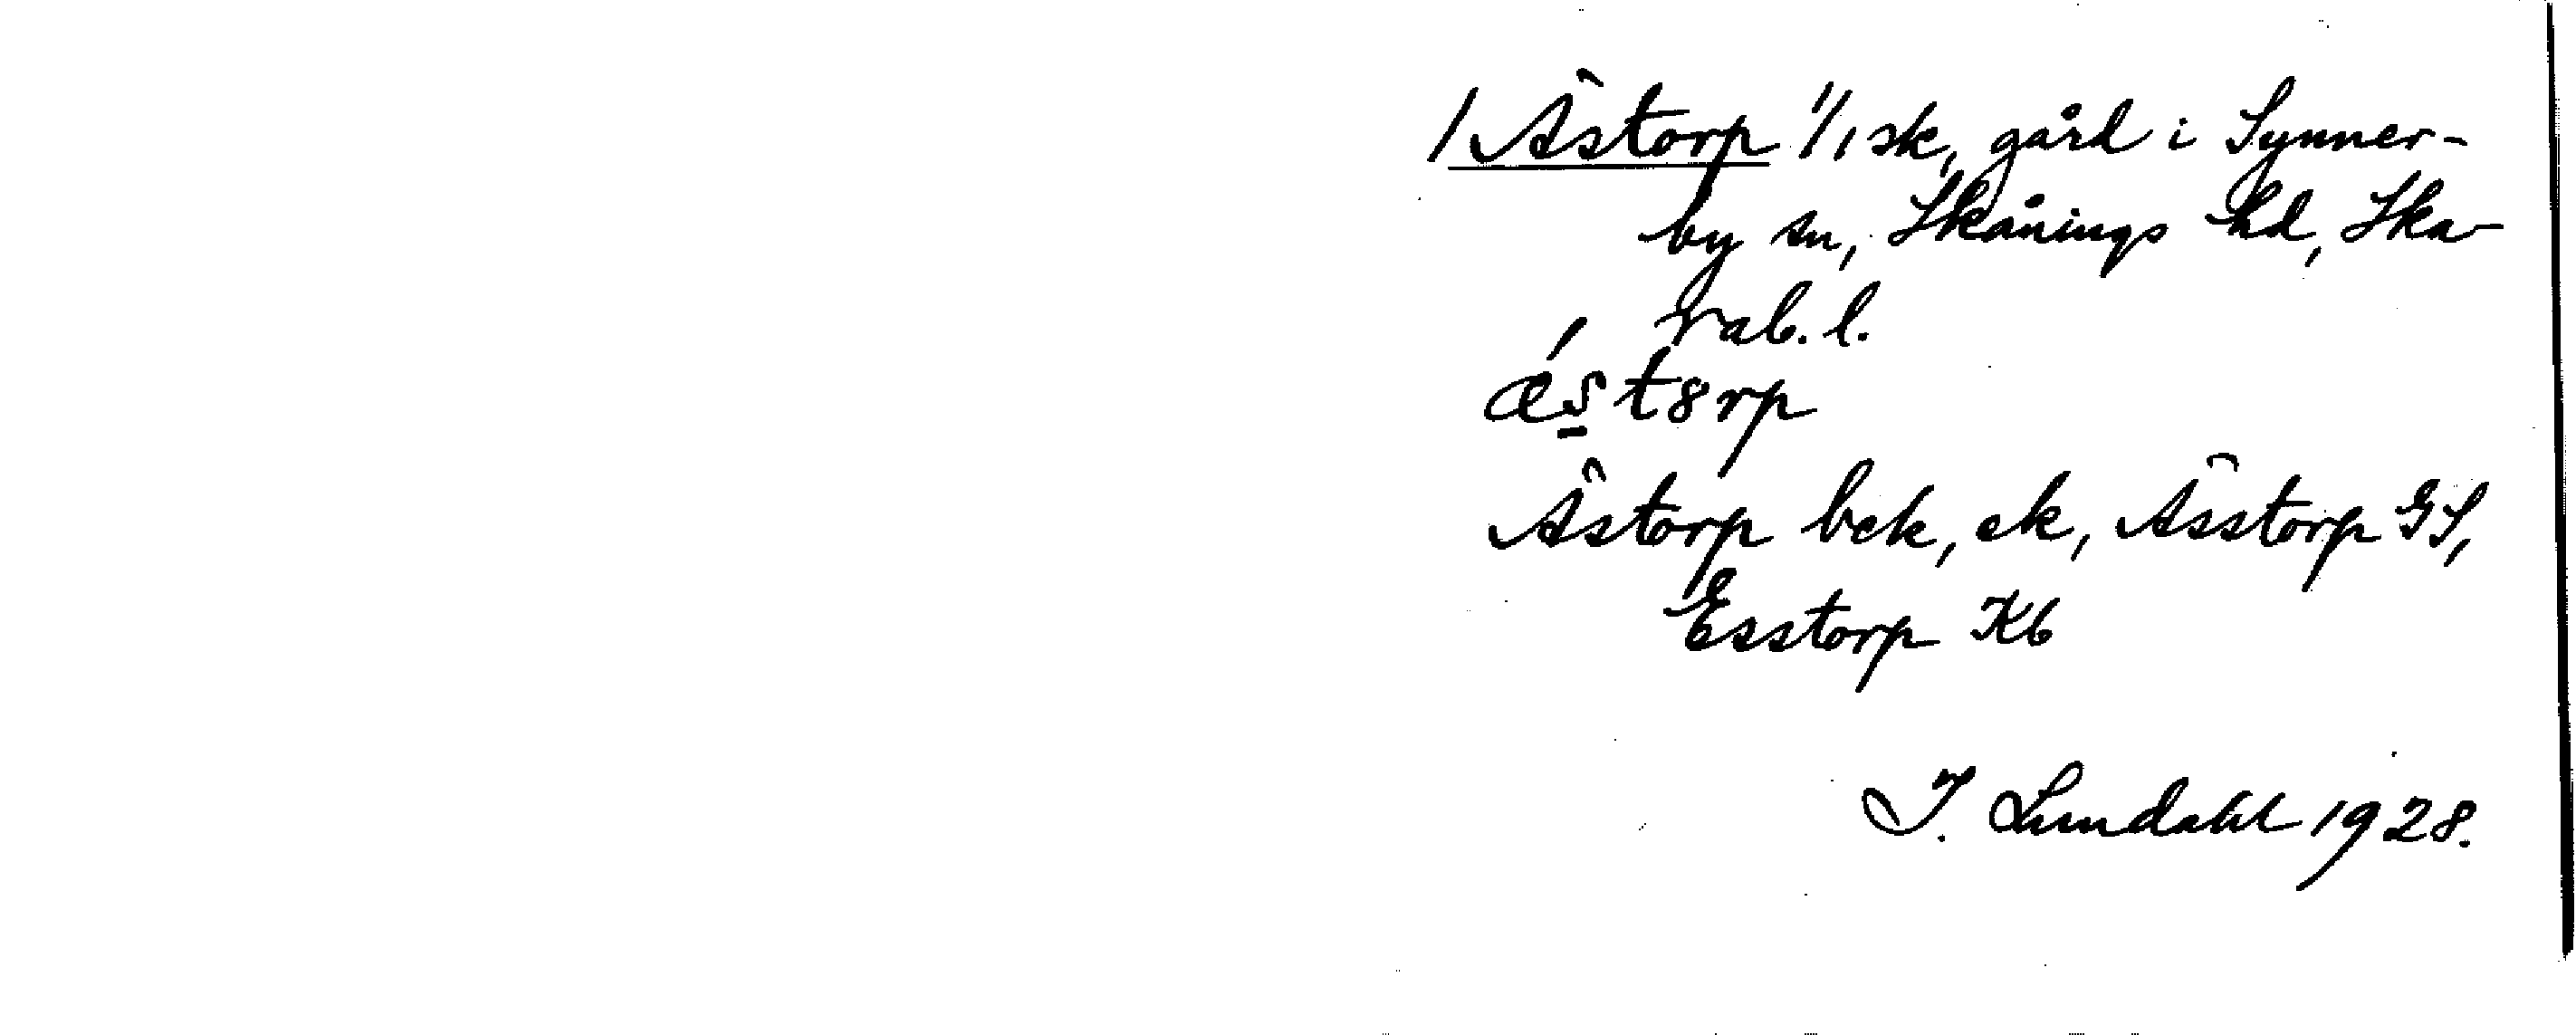 / Ästorp 1/1 sk, gård i Synner-
by sn, Skånings hd, Ska-
rab. l.
ǽst8rp
Ästorp bek, ek, Ässtorp GS,
Esstorp Kb
I. Lundahl 1928.